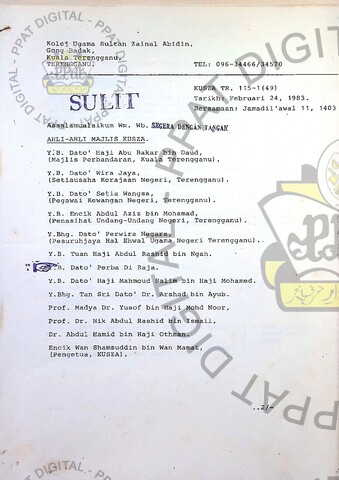 Kolej Ugama Sultan Zainal Abidin,
Gong Badak,
Kuala Terengganu,
TERENGGANU.
TEL: 096-34466/34520
KUSZA TR. 115-1(49)
Tarikh: Februari 24, 1983.
Bersamaan: Jamadil'awal 11, 1403
SULIT
Assalamualaikum Wm. Wb.
SEGERA DENGAN TANGAN
AHLI-AHLI MAJLIS KUSZA.
Y.B. Dato' Haji Abu Bakar bin Daud,
(Majlis Perbandaran, Kuala Terengganu).
Y.B. Dato' Wira Jaya,
(Setiausaha Kerajaan Negeri, Terengganu).
Y.B. Dato' Setia Wangsa,
(Pegawai Kewangan Negeri, Terengganu).
Y.B. Encik Abdul Aziz bin Mohamad,
(Penasihat Undang-Undang Negeri, Terengganu).
Y.Bhg. Dato' Perwira Negara,
(Pesuruhjaya Hal Ehwal Ugama Negeri Terengganu).
Y.B. Tuan Haji Abdul Rashid bin Ngah.
Y.B. Dato' Perba Di Raja.
Y.B. Dato' Haji Mahmoud Salim bin Haji Mohamed.
Y.Bhg. Tan Sri Dato' Dr. Arshad bin Ayub.
Prof. Madya Dr. Yusof bin Haji Mohd Noor,
Prof. Dr. Nik Abdul Rashid bin Ismail,
Dr. Abdul Hamid bin Haji Othman.
Encik Wan Shamsuddin bin Wan Mamat,
(Pengetua, KUSZA).
..2/-
PPAT DIGITAL - PPAT DIGITAL